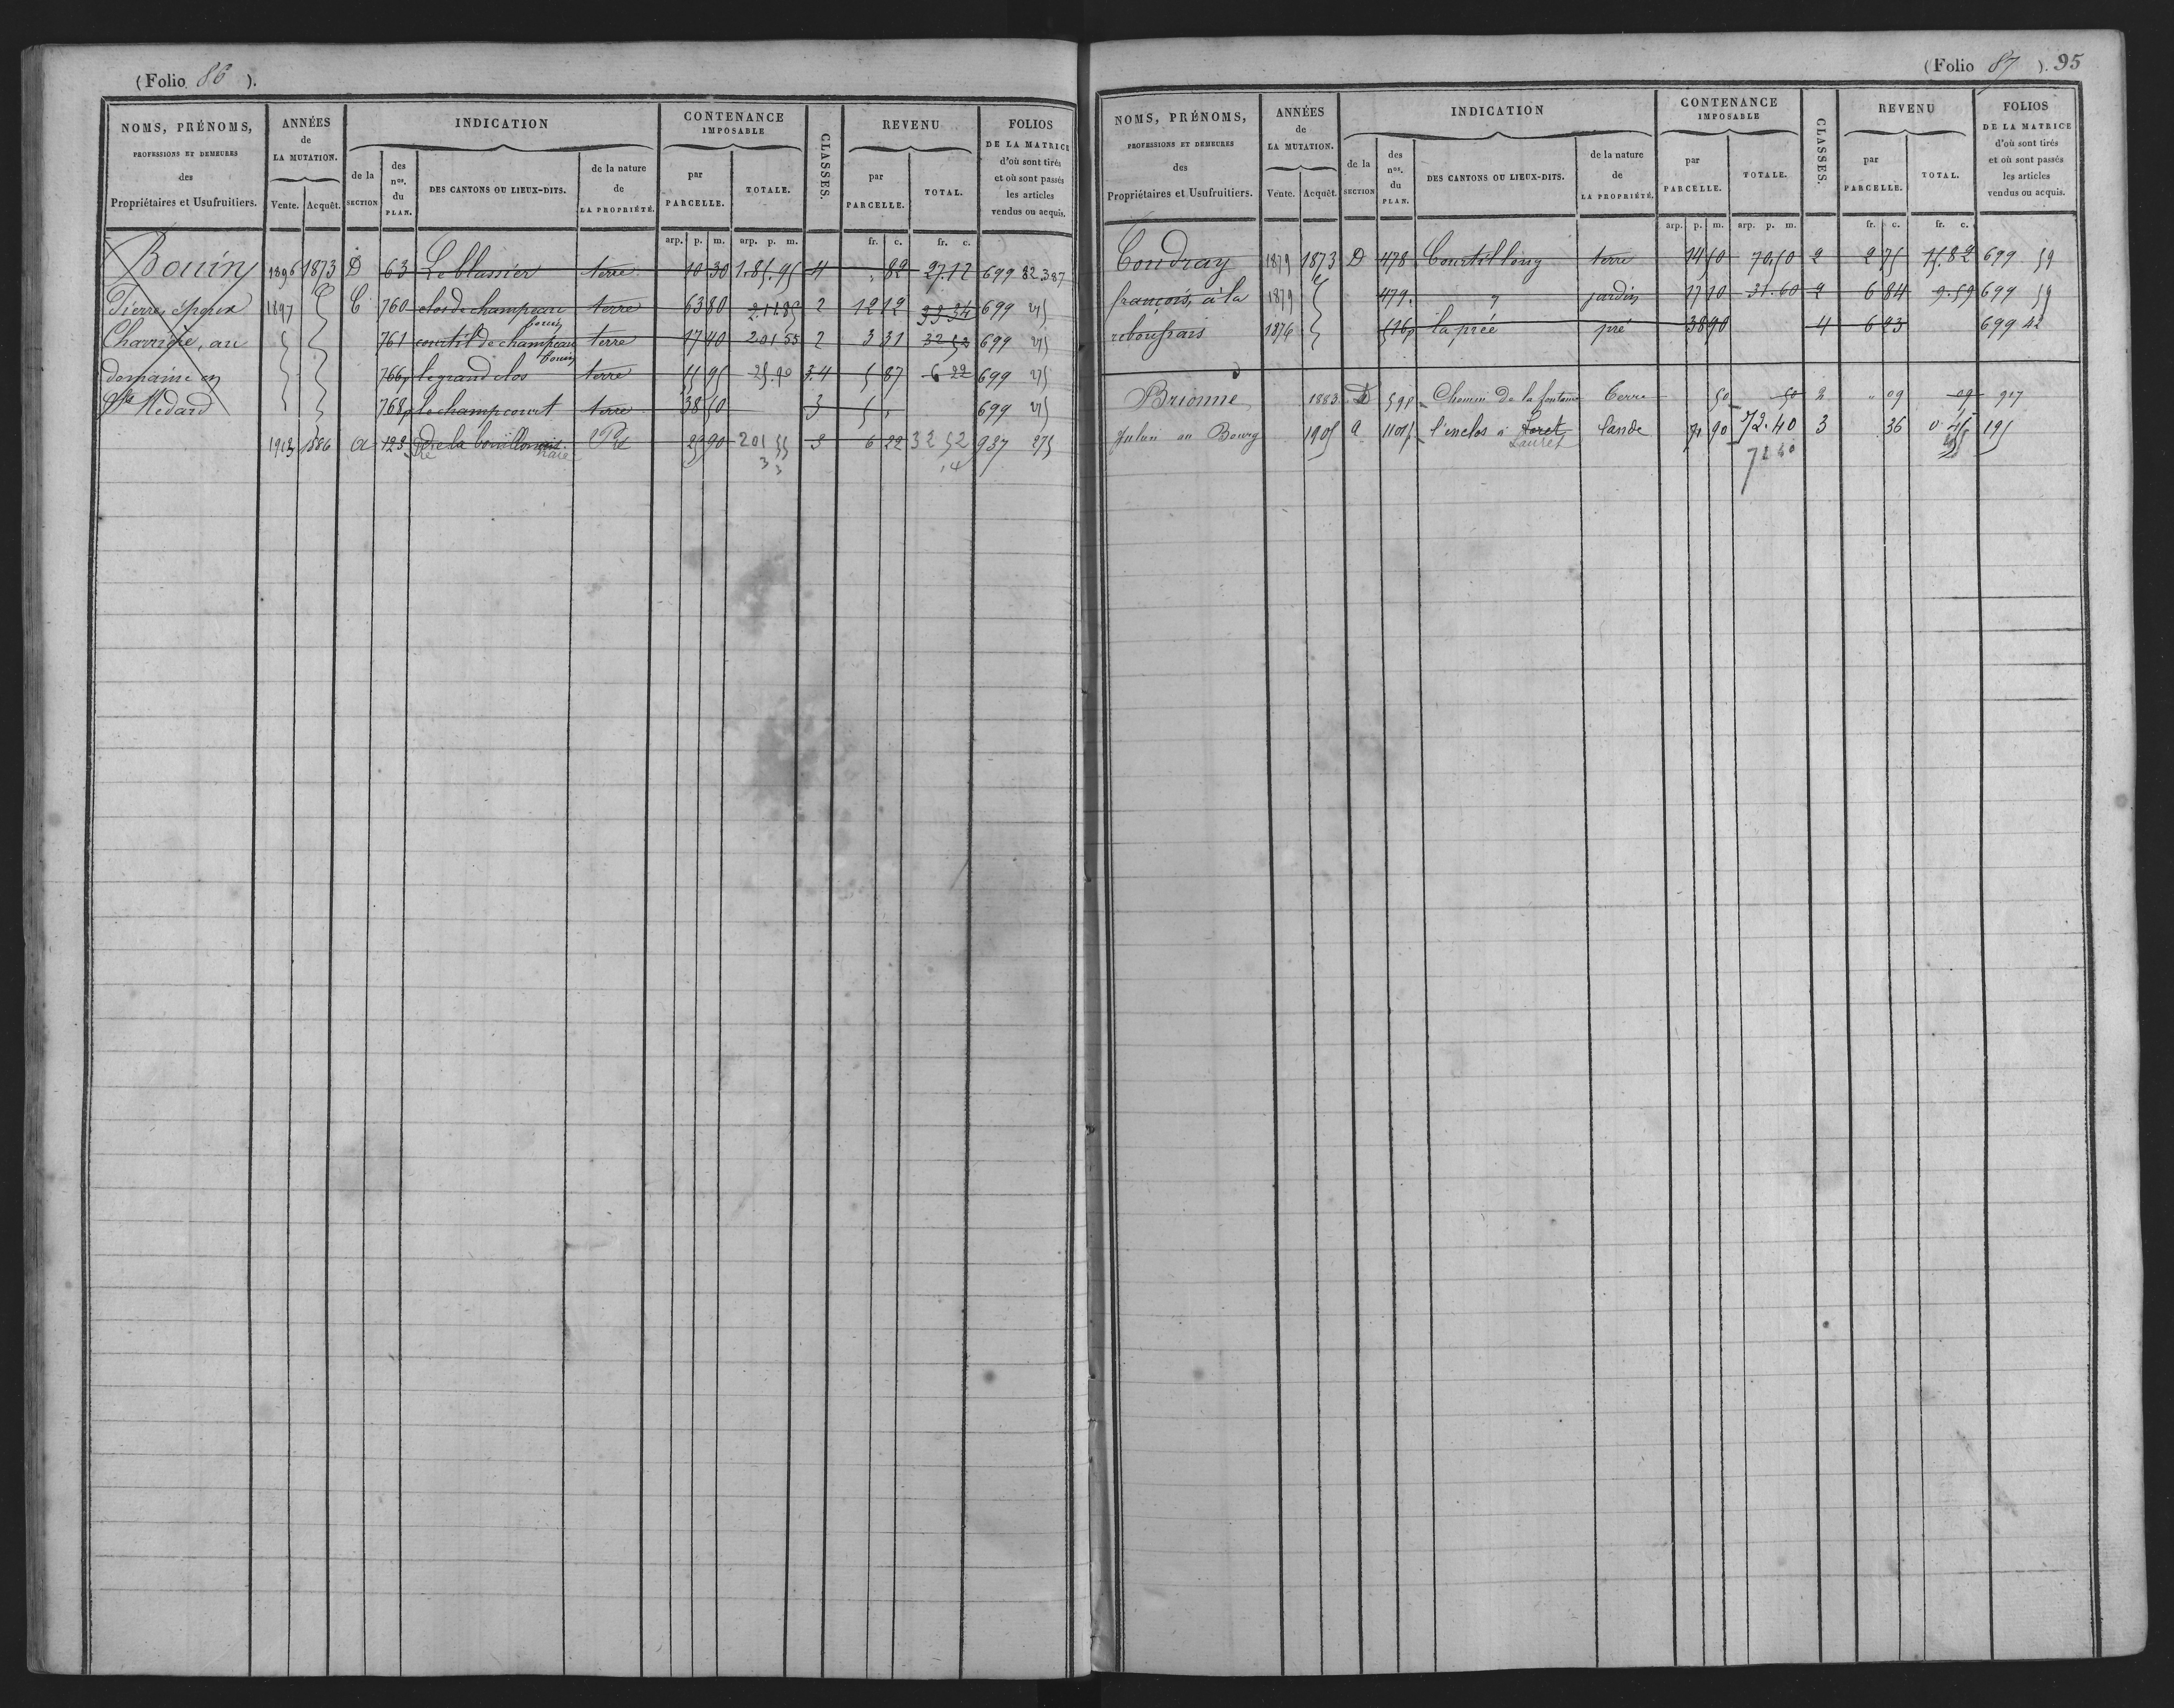 (Folio 86 ).
NOMS, PRÉNOMS, PROFESSIONS ET DEMEURES des Propriétaires et Usufruitiers. | ANNÉES de LA MUTATION. Vente. Acquêt. | INDICATION de la SECTION | des nos. du PLAN. | DES CANTONS OU LIEUX-DITS. | de la nature de LA PROPRIÉTÉ. | CONTENANCE IMPOSABLE par PARCELLE. TOTALE. | CLASSES. | REVENU par PARCELLE. TOTAL. | FOLIOS DE LA MATRICE d'où sont tirés et où sont passés les articles vendus ou acquis.
arp. p. m. arp. p. m. fr. c. fr. c.
Bouin 1896 1873 D 63 Le blassier terre 10 30 1.85.95 4 " 82 27.12 699 82.387
Pierre, époux 1897 C 760 clos de champeau terre 63 80 2 12 12 33 34 699 275
Bouin
Chavrigné, au 761 courtil de champeau terre 17 40 2 01 55 2 3 31 32 52 699 275
Bouin
domaine en 766p le grand clos terre 55 95 29.90 3.4 5 87 6 22 699 275
St Medard 768p le champ court terre 38 50 3 5 " 699 275
1913 1886 a 123 de la bouillonnais Pré 29 90 2 01 55 3 6 22 32 52 937 275
(Folio 87 ). 95
NOMS, PRÉNOMS, PROFESSIONS ET DEMEURES des Propriétaires et Usufruitiers. | ANNÉES de LA MUTATION. Vente. Acquêt. | INDICATION de la SECTION | des nos. du PLAN. | DES CANTONS OU LIEUX-DITS. | de la nature de LA PROPRIÉTÉ. | CONTENANCE IMPOSABLE par PARCELLE. TOTALE. | CLASSES. | REVENU par PARCELLE. TOTAL. | FOLIOS DE LA MATRICE d'où sont tirés et où sont passés les articles vendus ou acquis.
arp. p. m. arp. p. m. fr. c. fr. c.
Coudray 1879 1873 D 478 Courtil long terre 14 50 70.50 2 2 75 15.82 699 59
françois, à la 1879 479. " jardin 17 10 31.60 2 6 84 9.59 699 59
reboufrais 1876 516p la prée pré 38 90 4 6 23 699 42
Brionne 1883 D 591 Chemin de la fontaine Terre 50 50 2 " 09 09 917
Julien au Bourg 1905 a l'enclos à Foret lande 71 90 72.40 3 36 0.45 195
Lauret
72 40